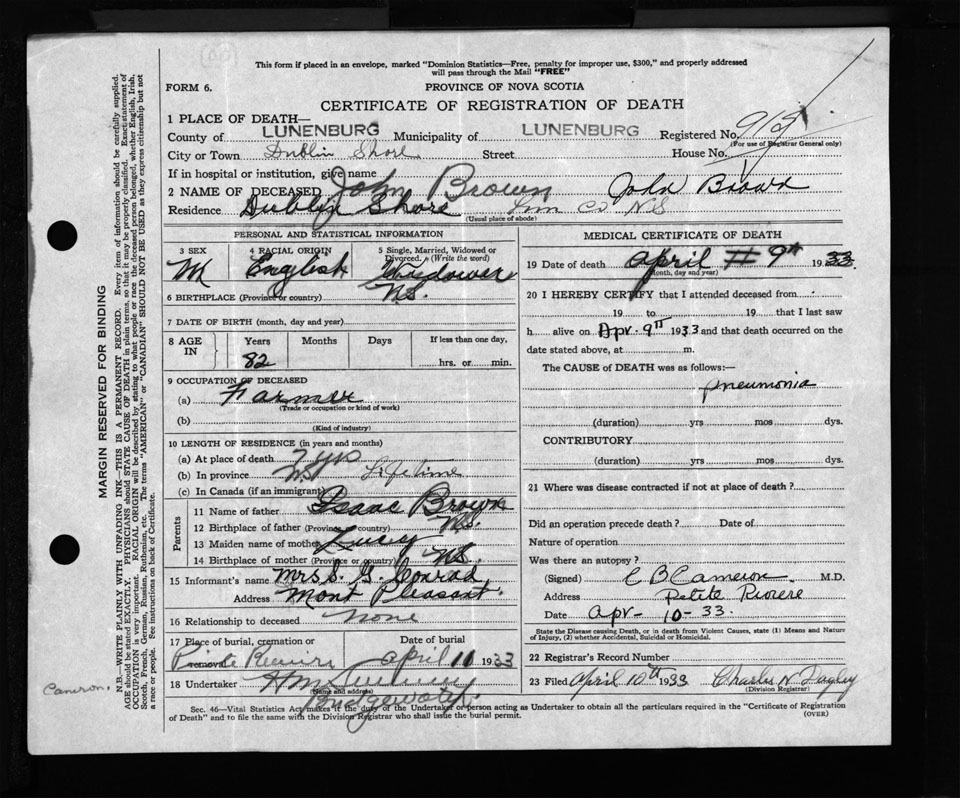 This form if placed in an envelope, marked "Dominion Statistics—Free, penalty for improper use, $300," and properly addressed
will pass through the Mail "FREE"
FORM 6.
PROVINCE OF NOVA SCOTIA
CERTIFICATE OF REGISTRATION OF DEATH
1 PLACE OF DEATH—
County of LUNENBURG Municipality of LUNENBURG Registered No. 915
(For use of Registrar General only)
City or Town Dublin Shore Street House No.
If in hospital or institution, give name
2 NAME OF DECEASED John Brown John Brown
Residence Dublin Shore Lun Co NS
(Usual place of abode)
PERSONAL AND STATISTICAL INFORMATION
3 SEX 4 RACIAL ORIGIN 5 Single, Married, Widowed or
Divorced. (Write the word)
M English Widower
6 BIRTHPLACE (Province or country) NS.
7 DATE OF BIRTH (month, day and year)
8 AGE IN Years Months Days If less than one day,
82 hrs. or min.
9 OCCUPATION OF DECEASED
(a) Farmer
(Trade or occupation or kind of work)
(b)
(Kind of industry)
10 LENGTH OF RESIDENCE (in years and months)
(a) At place of death 7 yrs
(b) In province NS Lifetime
(c) In Canada (if an immigrant)
Parents
11 Name of father Isaac Brown
12 Birthplace of father (Province or country) NS.
13 Maiden name of mother Lucy
14 Birthplace of mother (Province or country) NS.
15 Informant's name Mrs S. G. Conrad
Address Mont Pleasant
16 Relationship to deceased none
17 Place of burial, cremation or removal Date of burial
April 11 1933
18 Undertaker
(Name and address)
Bridgewater
MEDICAL CERTIFICATE OF DEATH
19 Date of death April # 9th 1933
(Month, day and year)
20 I HEREBY CERTIFY that I attended deceased from
19 to 19 that I last saw
h alive on Apr. 9th 1933 and that death occurred on
date stated above, at m.
The CAUSE of DEATH was as follows:—
pneumonia
(duration) yrs mos dys.
CONTRIBUTORY
(duration) yrs mos dys.
21 Where was disease contracted if not at place of death?
Did an operation precede death? Date of
Nature of operation
Was there an autopsy?
(Signed) C B Cameron M.D.
Address Petite Riviere
Date Apr - 10 - 33.
State the Disease causing Death, or in death from Violent Causes, state (1) Means and Nature
of Injury, (2) whether Accidental, Suicidal or Homicidal.
22 Registrar's Record Number
23 Filed April 10th 1933 Charles N
(Division Registrar)
Sec. 46—Vital Statistics Act makes it the duty of the Undertaker or person acting as Undertaker to obtain all the particulars required in the "Certificate of Registration
of Death" and to file the same with the Division Registrar who shall issue the burial permit.
(OVER)
MARGIN RESERVED FOR BINDING
N.B.—WRITE PLAINLY WITH UNFADING INK—THIS IS A PERMANENT RECORD. Every item of information should be carefully supplied.
AGE should be stated EXACTLY. PHYSICIANS should STATE CAUSE OF DEATH in plain terms, so that it may be properly classified. Exact statement of
OCCUPATION is very important. RACIAL ORIGIN will be described by stating to what people or race the deceased person belonged, whether English, Irish,
Scotch, French, German, Russian, Ruthenian, etc. The terms "AMERICAN" or "CANADIAN" SHOULD NOT BE USED as they express citizenship but not
a race or people. See instructions on back of Certificate.
Cameron.